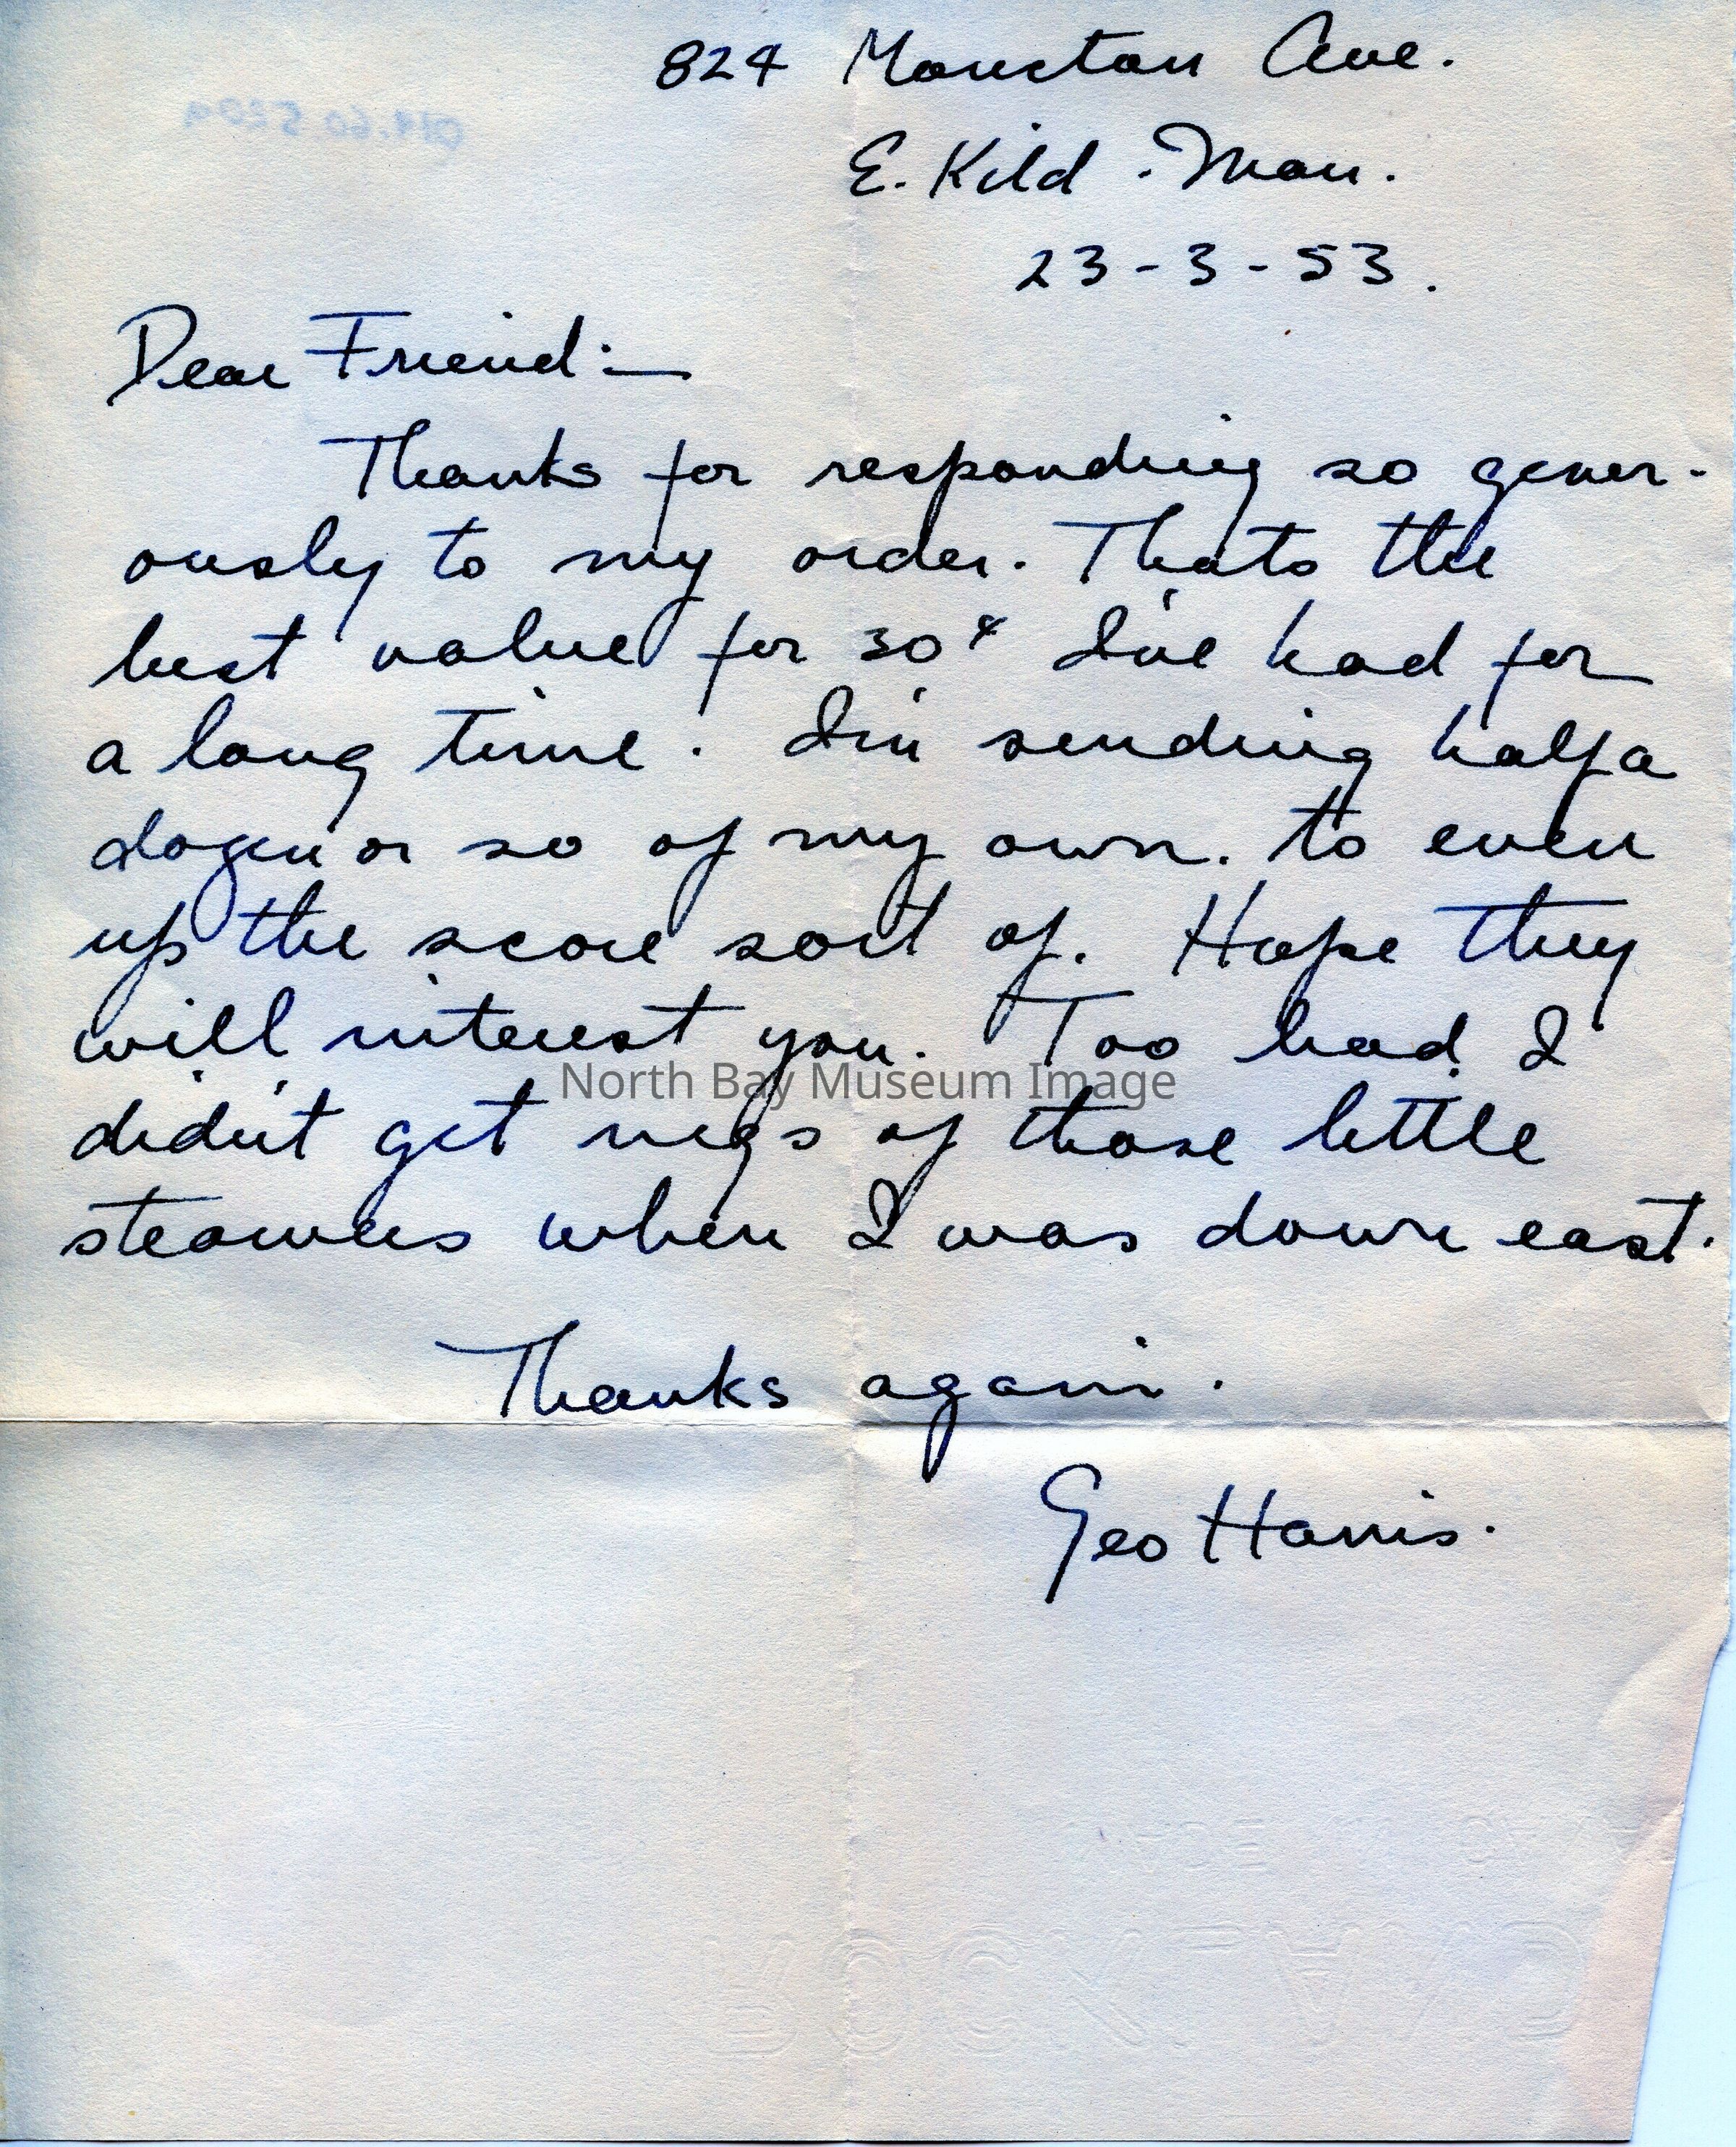 824 Moncton Ave.
E. Kild. Man.
23-3-53.
Dear Friend:—
Thanks for responding so gener-
ously to my order. Thats the
best value for 30¢ I've had for
a long time. I'm sending half a
dozen or so of my own. to even
up the score sort of. Hope they
will interest you. Too bad I
North Bay Museum Image
didn't get negs of those little
steamers when I was down east.
Thanks again.
Geo Harris.